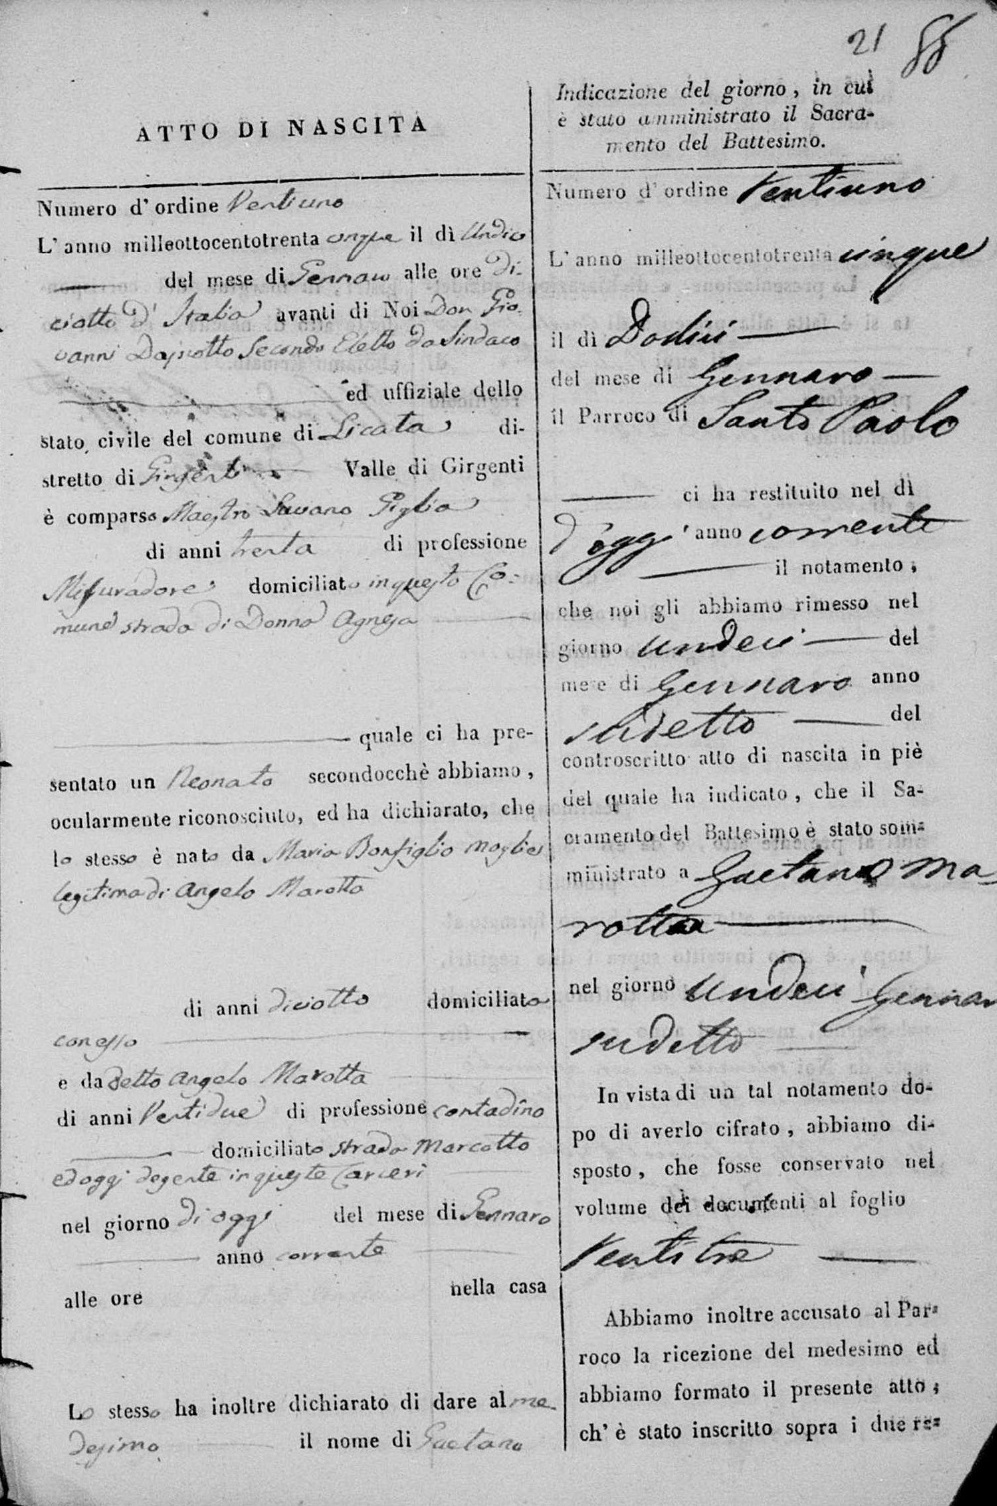 21 88
ATTO DI NASCITA
Numero d' ordine Ventiuno
L' anno milleottocentotrenta cinque il dì Undici
del mese di Gennaro alle ore di:
ciotto d' Italia avanti di Noi Don Gio:
vanni Dajnotto Secondo Eletto da Sindaco
ed uffiziale dello
stato civile del comune di Licata di-
stretto di Girgenti Valle di Girgenti
è comparso Maestro Giglia
di anni trenta di professione
Misuradore domiciliato in questo Co:
mune strada di Donna Agnesa
quale ci ha pre-
sentato un Neonato secondocchè abbiamo,
ocularmente riconosciuto, ed ha dichiarato, che
lo stesso è nato da Maria Bonfiglio moglie
legitima di Angelo Marotta
di anni diciotto domiciliata
con esso
e da detto Angelo Marotta
di anni Ventidue di professione contadino
domiciliato strada Marcotto
ed oggi degente in queste Carceri
nel giorno di oggi del mese di Gennaro
anno corrente
alle ore nella casa
Lo stesso ha inoltre dichiarato di dare al me
desimo il nome di Gaetano
Indicazione del giorno, in cui
è stato amministrato il Sacra-
mento del Battesimo.
Numero d' ordine Ventiuno
L' anno milleottocentotrenta cinque
il dì Dodici
del mese di Gennaro
il Parroco di Santo Paolo
ci ha restituito nel dì
d' oggi anno corrente
il notamento,
che noi gli abbiamo rimesso nel
giorno undeci del
mese di Gennaro anno
sudetto del
controscritto atto di nascita in piè
del quale ha indicato, che il Sa-
cramento del Battesimo è stato som-
ministrato a Gaetano Ma-
rotta
nel giorno undeci Gennaro
sudetto
In vista di un tal notamento do-
po di averlo cifrato, abbiamo di-
sposto, che fosse conservato nel
volume dei documenti al foglio
Ventitre
Abbiamo inoltre accusato al Par-
roco la ricezione del medesimo ed
abbiamo formato il presente atto,
ch' è stato inscritto sopra i due re-